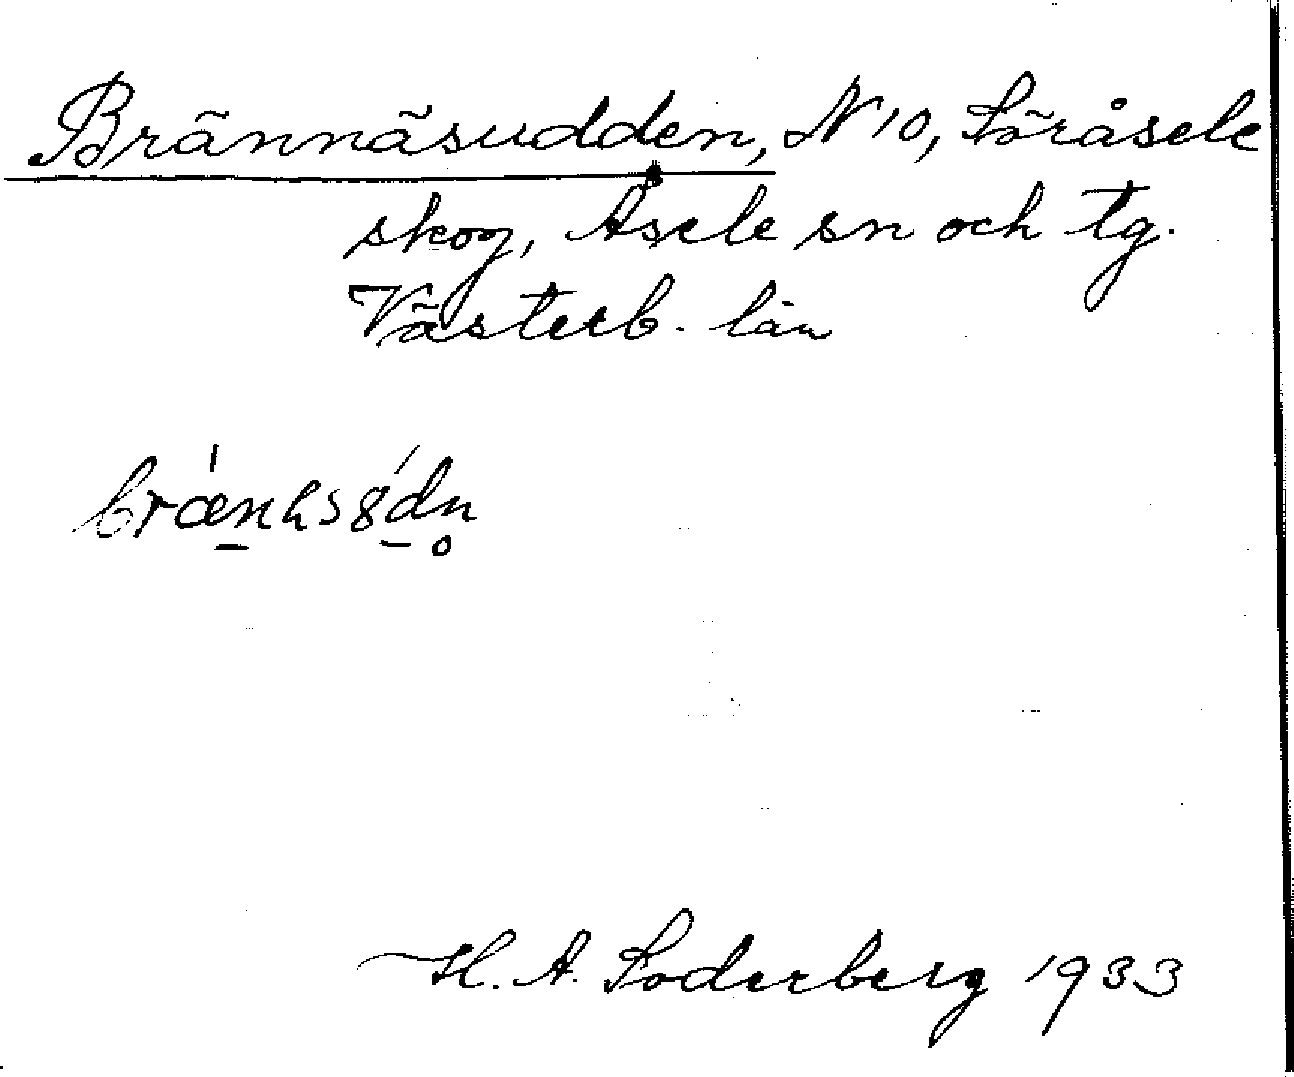 Brännäsudden, N10, Söråsele
skog, Åsele sn och tg.
Västerb. län
H. A. Söderberg 1933